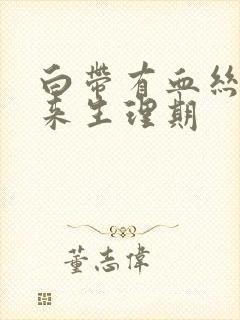 白帶有血絲
來生理期
董志偉